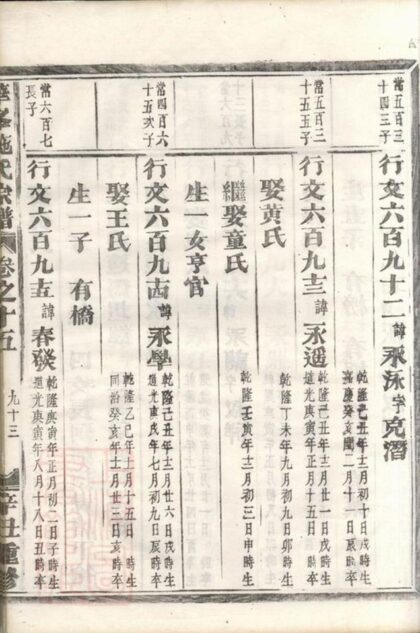 當五百三
十四三子
行文六百九十二 諱 永泳 字 克潛
乾隆 年十二月初十日戌時生
嘉慶癸亥閏二月十一日辰時卒
當五百三
十五五子
行文六百九十三 諱 永遥
乾隆己丑年十二月廿一日戌時生
道光庚寅年正月十五日辰時卒
娶黄氏
乾隆丁未年九月初九日卯時生
繼娶童氏
乾隆壬寅年十二月初三日申時生
生一女亨官
當四百六
十五次子
行文六百九十四 諱 永學
乾隆己丑年十二月廿六日戌時生
道光庚戌年七月初九日辰時卒
娶王氏
乾隆乙巳年十月十五日 時生
同治癸亥年十一月廿三日亥時卒
生一子 有橋
當六百七
長子
行文六百九十五 諱 春發
乾隆庚寅年正月初二日子時生
道光庚寅年八月十八日丑時卒
施氏宗譜
卷之十五
九十三
辛丑重修